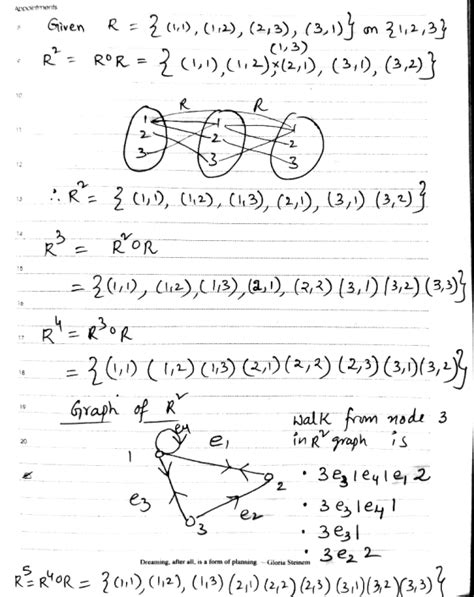 Appointments
Given R = {(1,1), (1,2), (2,3), (3,1)} on {1,2,3}
(1,3)
R² = R∘R = { (1,1), (1,2), (2,1), (3,1), (3,2)}
R R
1 1 1
2 2 2
3 3 3
∴ R² = { (1,1), (1,2), (1,3), (2,1), (3,1) (3,2)}
R³ = R²∘R
= {(1,1), (1,2), (1,3), (2,1), (2,2) (3,1) (3,2) (3,3)}
R⁴ = R³∘R
= {(1,1) (1,2) (1,3) (2,1) (2,2) (2,3) (3,1) (3,2)}
Graph of R²
walk from node 3
in R² graph is
e4
e1
1
2
e3
e2
3
• 3e3 1e4 1e1 2
• 3e3 1e4 1
• 3e3 1
• 3e2 2
Dreaming, after all, is a form of planning —Gloria Steinem
R⁵ = R⁴∘R = {(1,1), (1,2), (1,3) (2,1) (2,2) (2,3) (3,1) (3,2) (3,3)}